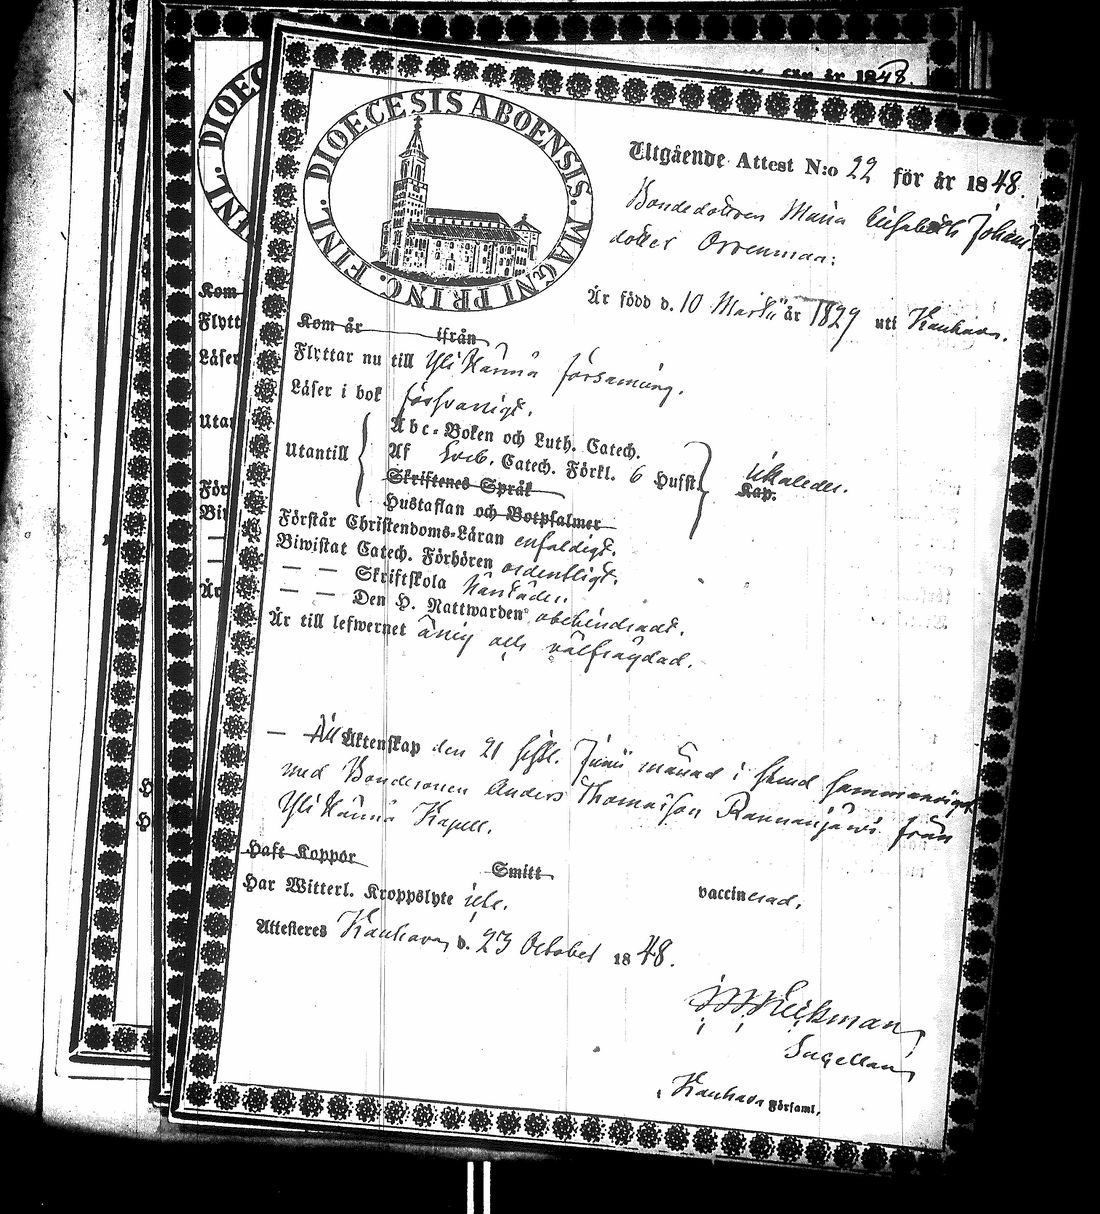 FINL. DIOECESIS ABOENSIS. MAGNI PRINC.
Utgående Attest N:o 22 för år 1848.
Bondedottren Maria Elisabeth Johans
dotter Orrenmaa:
Är född d. 10 Martii år 1829 uti Kauhava.
Kom år ifrån
Flyttar nu till Yli Härmä församling.
Läser i bok försvarligt.
Utantill
Abc-Boken och Luth. Catech.
Af Sveb. Catech. Förkl. 6 Hufst.
Skriftenes Språk Kap.
Hustaflan och Botpsalmer
Förstår Christendoms-Läran enfaldigt.
Biwistat Catech. Förhören ordentligt.
— — Skriftskola
— — Den H. Nattwarden obehindradt.
Är till lefwernet ärlig och välfrägdad.
— Till Äktenskap den 21 sistl. Junii månad i stånd sammanvigt
med Bondesonen Anders Thomasson Rannanjärvi från
Yli Härmä Kapell.
Haft Koppor Smitt vaccinerad.
Har Witterl. Kroppslyte icke.
Attesteres Kauhava, d. 23 October 1848.
Sacellan,
Kauhava Församl.
för år 1848.
DIOEC
FINL.
Kom
Flytt
Läser
Utan
För
Biw
Är